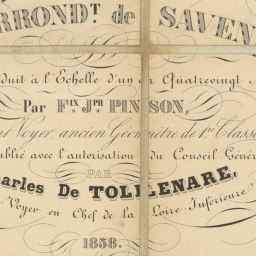 RRONDT. de SAVEN
duit à l'Echelle d'un en Quatrevingt
Par FIX JPH PINSON,
Voyer, ancien Géomètre de 1re Classe
ublié avec l'autorisation du Conseil Génér
PAR
harles De TOLLENARE,
Voyer en Chef de la Loire Inférieure
1858.